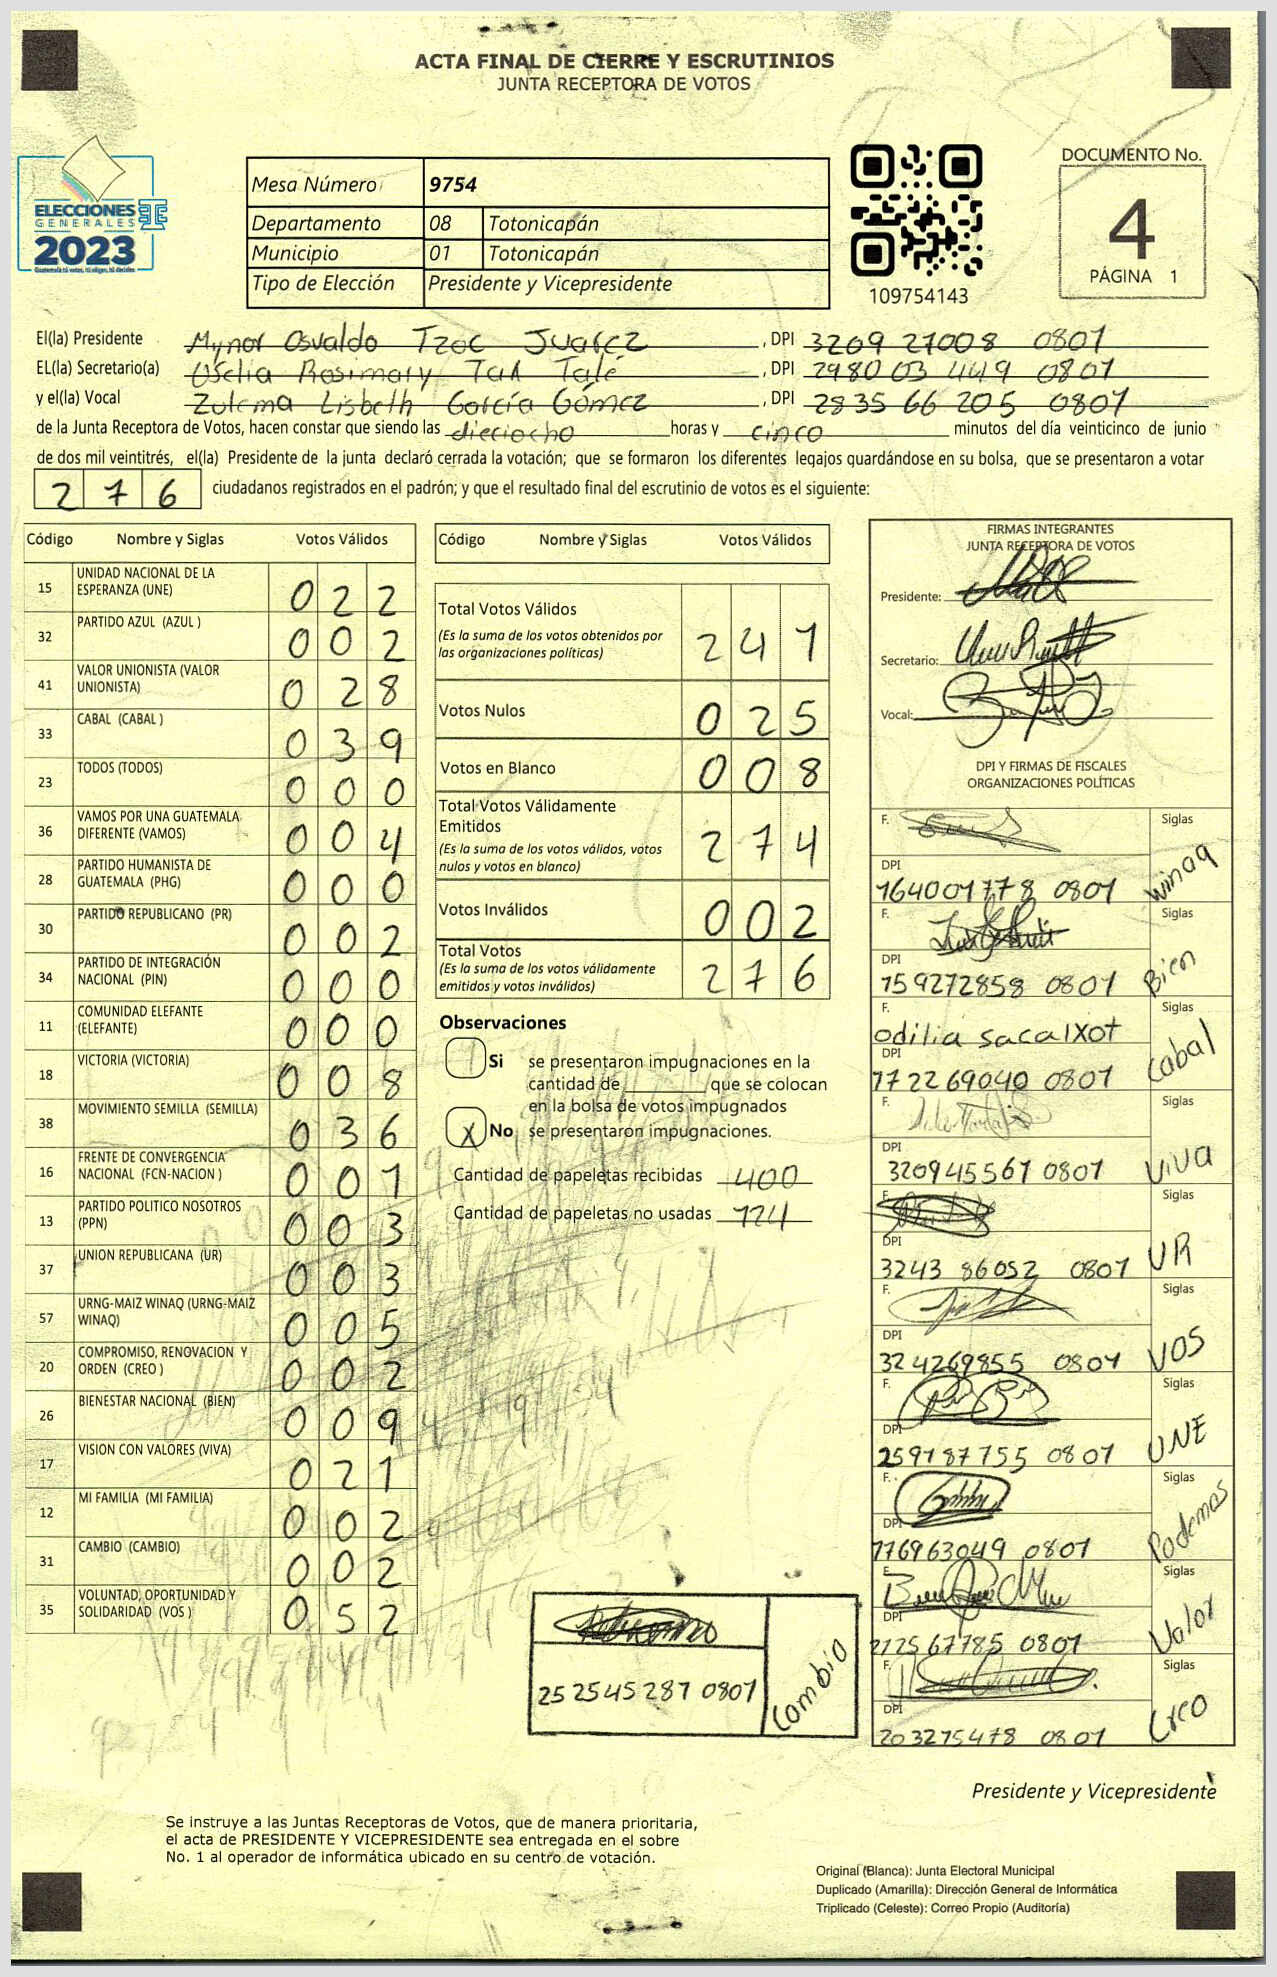 ACTA FINAL DE CIERRE Y ESCRUTINIOS
JUNTA RECEPTORA DE VOTOS
ELECCIONES
GENERALES
2023
Mesa Número 9754
Departamento 08 Totonicapán
Municipio 01 Totonicapán
Tipo de Elección Presidente y Vicepresidente
109754143
DOCUMENTO No.
4
PÁGINA 1
El(la) Presidente Mynor Osvaldo Tzoc Juarez, DPI 3209 27008 0801
EL(la) Secretario(a) Rosimary, DPI 2980 03 449 0801
y el(la) Vocal Zulema Lisbeth García Gómez, DPI 2835 66 205 0801
de la Junta Receptora de Votos, hacen constar que siendo las dieciocho horas y cinco minutos del día veinticinco de junio
de dos mil veintitrés, el(la) Presidente de la junta declaró cerrada la votación; que se formaron los diferentes legajos guardándose en su bolsa, que se presentaron a votar
276 ciudadanos registrados en el padrón; y que el resultado final del escrutinio de votos es el siguiente:
Código Nombre y Siglas Votos Válidos
15 UNIDAD NACIONAL DE LA ESPERANZA (UNE) 022
32 PARTIDO AZUL (AZUL ) 002
41 VALOR UNIONISTA (VALOR UNIONISTA) 028
33 CABAL (CABAL ) 039
23 TODOS (TODOS) 000
36 VAMOS POR UNA GUATEMALA DIFERENTE (VAMOS) 004
28 PARTIDO HUMANISTA DE GUATEMALA (PHG) 000
30 PARTIDO REPUBLICANO (PR) 002
34 PARTIDO DE INTEGRACIÓN NACIONAL (PIN) 000
11 COMUNIDAD ELEFANTE (ELEFANTE) 000
18 VICTORIA (VICTORIA) 008
38 MOVIMIENTO SEMILLA (SEMILLA) 036
16 FRENTE DE CONVERGENCIA NACIONAL (FCN-NACION ) 001
13 PARTIDO POLITICO NOSOTROS (PPN) 003
37 UNION REPUBLICANA (UR) 003
57 URNG-MAIZ WINAQ (URNG-MAIZ WINAQ) 005
20 COMPROMISO, RENOVACION Y ORDEN (CREO ) 002
26 BIENESTAR NACIONAL (BIEN) 009
17 VISION CON VALORES (VIVA) 021
12 MI FAMILIA (MI FAMILIA) 002
31 CAMBIO (CAMBIO) 002
35 VOLUNTAD, OPORTUNIDAD Y SOLIDARIDAD (VOS ) 052
Código Nombre y Siglas Votos Válidos
Total Votos Válidos 241
(Es la suma de los votos obtenidos por
las organizaciones políticas)
Votos Nulos 025
Votos en Blanco 008
Total Votos Válidamente
Emitidos 274
(Es la suma de los votos válidos, votos
nulos y votos en blanco)
Votos Inválidos 002
Total Votos 276
(Es la suma de los votos válidamente
emitidos y votos inválidos)
Observaciones
Si se presentaron impugnaciones en la
cantidad de ________ que se colocan
en la bolsa de votos impugnados
X No se presentaron impugnaciones.
Cantidad de papeletas recibidas 400
Cantidad de papeletas no usadas 124
252545287 0801 Cambio
FIRMAS INTEGRANTES
JUNTA RECEPTORA DE VOTOS
Presidente:
Secretario:
Vocal:
DPI Y FIRMAS DE FISCALES
ORGANIZACIONES POLÍTICAS
F. Siglas
DPI 164001778 0801 winaq
F. Siglas
DPI 159272858 0801 Bien
F. odilia sacalxot Siglas
DPI 172269040 0801 Cabal
F. Siglas
DPI 320945567 0801 VIVA
F. Siglas
DPI 3243 86052 0801 UR
F. Siglas
DPI 324269855 0801 VOS
F. Siglas
DPI 259187755 0801 UNE
F. Siglas
DPI 176963049 0801 Podemos
F. Siglas
DPI 212567785 0801 Valor
F. Siglas
DPI 203275478 0801 Creo
Presidente y Vicepresidente
Se instruye a las Juntas Receptoras de Votos, que de manera prioritaria,
el acta de PRESIDENTE Y VICEPRESIDENTE sea entregada en el sobre
No. 1 al operador de informática ubicado en su centro de votación.
Original (Blanca): Junta Electoral Municipal
Duplicado (Amarilla): Dirección General de Informática
Triplicado (Celeste): Correo Propio (Auditoría)